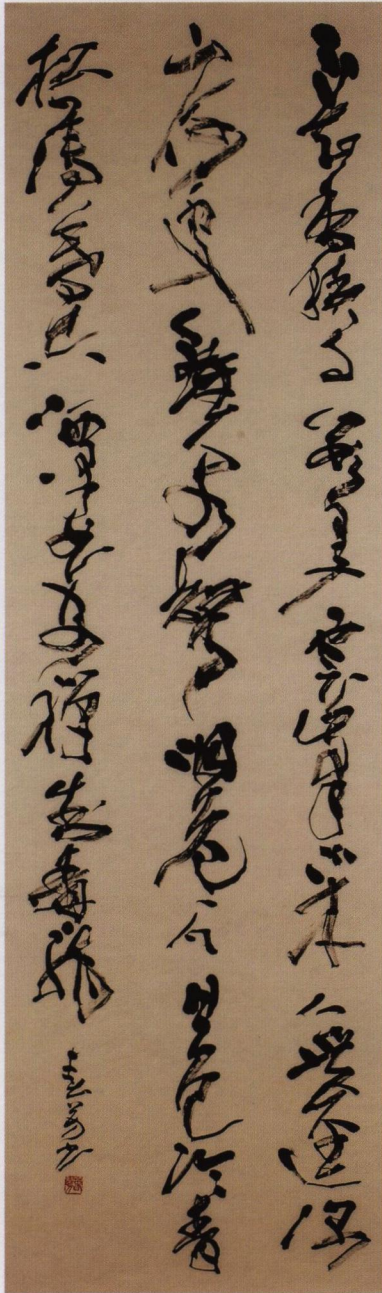 不知香積寺數里入雲峰古木無人逕深
山何處鐘泉聲咽危石日色冷青
松薄暮空潭曲安禪制毒龍